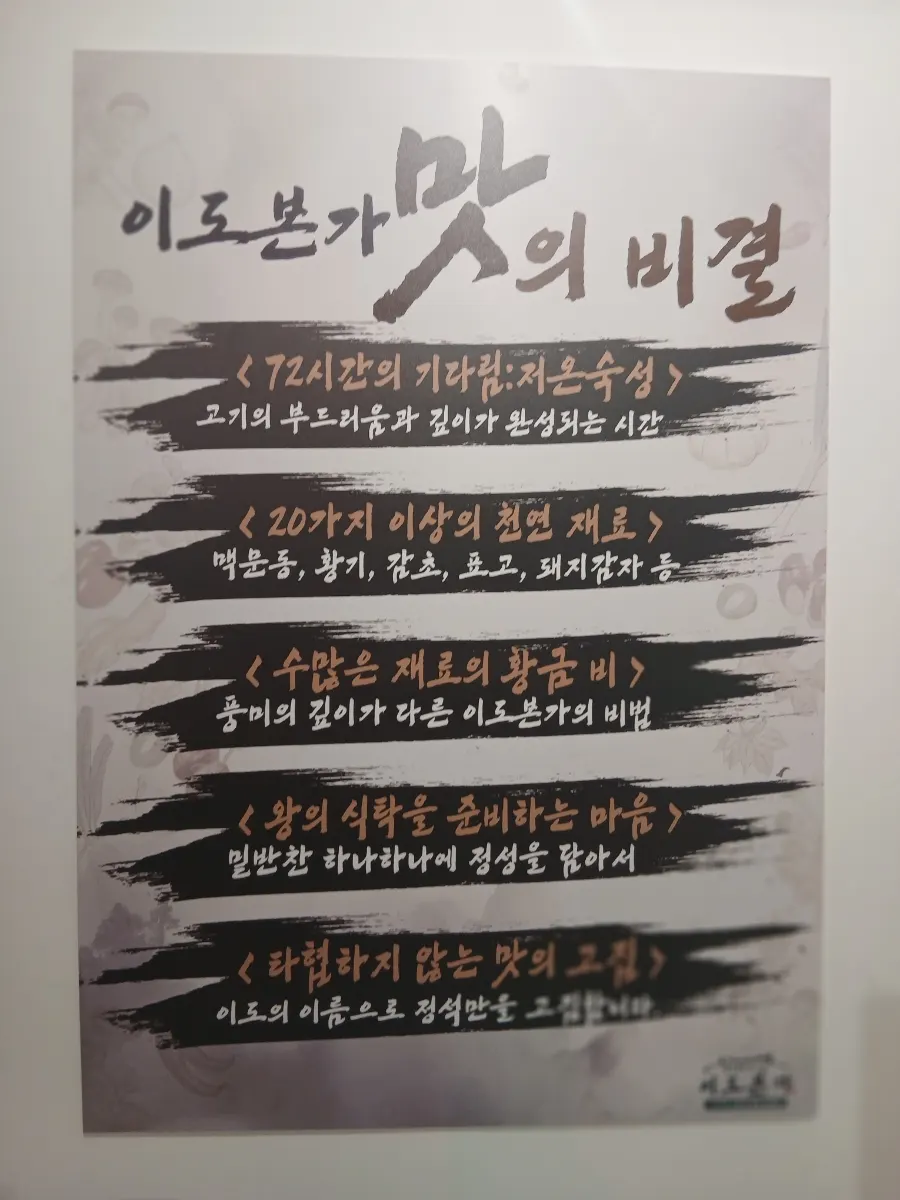 이도본가 맛의 비결
< 72시간의 기다림:저온숙성 >
고기의 부드러움과 깊이가 완성되는 시간
< 20가지 이상의 천연 재료 >
맥문동, 황기, 감초, 표고, 돼지감자 등
< 수많은 재료의 황금 비 >
풍미의 깊이가 다른 이도본가의 비법
< 왕의 식탁을 준비하는 마음 >
밑반찬 하나하나에 정성을 담아서
< 타협하지 않는 맛의 고집 >
이도의 이름으로 정석만을 고집합니다
이도본가